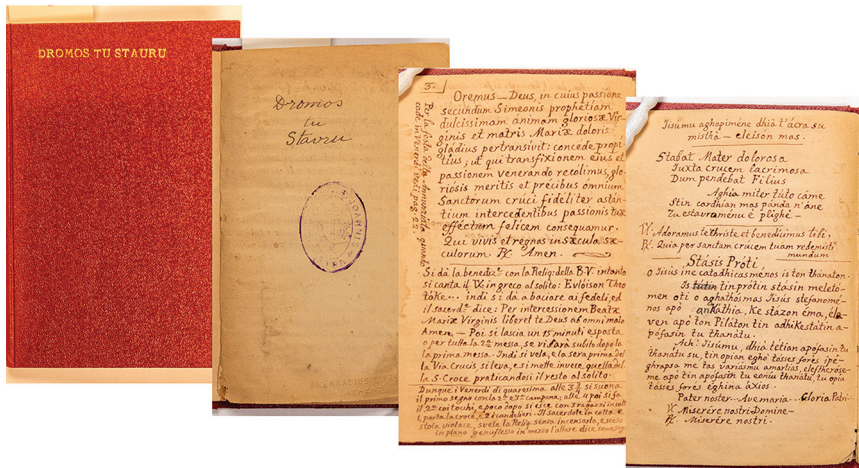 DROMOS TU STAURU
Dromos
tu
Stavru
3.
Oremus – Deus, in cuius passione
secundum Simeonis prophetiam
dulcissimam animam gloriosæ Vir-
ginis et matris Mariæ doloris
gladius pertransivit: concede propi
tius; ut qui transfixionem ejus et
passionem venerando recolimus, glo-
riosis meritis et precibus omnium
Sanctorum cruci fideliter astan-
tium intercedentibus passionis tuæ
effectum felicem consequamur.
Qui vivis et regnas in sæcula sæ-
culorum. ℟. Amen.
Per la festa della Annunziata quando
cade in Venerdi vedi pag. 22.
Si dà la benediz. con la Reliq: della B.V. intanto
si canta il ℣. in greco al solito: Evlóison Theo
tóke... indi si dà a baciare ai fedeli, ed
il sacerd. dice: Per intercessionem Beatæ
Mariæ Virginis liberet te Deus ab omni malo
Amen – Poi si lascia un 15 minuti esposta
o per tutta la 2ª messa, se vi sarà subito dopo la
la prima messa. Indi si vela, e la sera prima del
la Via Crucis si leva, e si mette invece quella del
la S. Croce praticandosi il resto al solito.
Dunque i Venerdì di quaresima alle 3 si suona
il primo segno con la 2ª e 3ª campana; alle 4 poi si fa
il 2º coi tochi, e poco dopo si esce con 3
porta la croce, e 2 i candelieri. Il sacerdote in cotta e
stola violace, svela la Reliq. senza incensarla, e sceso
in plano genuflesso in mezzo l'altare dice
Iisúmu aghapiméne dhià t'ácra su
misthà – eleison mas.
Stabat Mater dolorosa
Iuxta crucem lacrimosa
Dum pendebat Filius
Aghia miter túto cáme
Stin cardhian mas panda n'áne
Tu estavraménu è plighè –
℣. Adoramus te Christe et benedicimus tibi,
℟. Quia per sanctam crucem tuam redemisti
mundum
Stásis Próti
O Jisús ine catadhicasménos is ton thánaton.
Is tin prótin stásin meletó-
men óti o aghathósmas Iisús stefanomé-
nos apó ankáthia, ke stázon éma, éla-
ven apó ton Piláton tin adhikestátin a-
pófasin tu thanátu.
Ach! Iisúmu, dhià tétian apófasin tu
thanátu su, tin opían eghó tósses forés ipé-
ghrapsa me tas variasmu amartías, elefthérose-
me apó tin apófasin tu eoníu thanátu, tu opiu
tósses forés éghina áxios.
Pater noster.. Ave maria... Gloria Patri..
℣. Miserére nostri Domine –
℟. Miserére nostri.